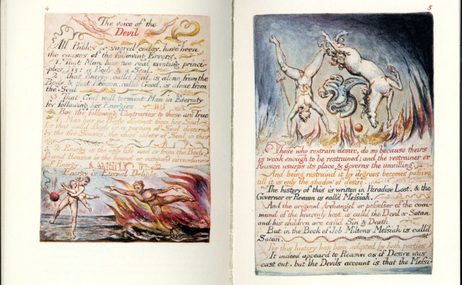 4
The voice of the
Devil
All Bibles or sacred codes. have been
the causes of the following Errors.
1. That Man has two real existing princi-
ples Viz: a Body & a Soul.
2. That Energy calld Evil. is alone from the
Body. & that Reason. calld Good. is alone from
the Soul.
3. That God will torment Man in Eternity
for following his Energies.
But the following Contraries to these are True
1 Man has no Body distinct from his Soul
that calld Body is a portion of Soul discernd
by the five Senses. the chief inlets of Soul in this
age
Energy is the only life and is from the Body
and Reason is the bound or outward circumference
Energy is Eternal Delight
5
Those who restrain desire, do so because theirs
is weak enough to be restrained; and the restrainer or
Reason usurps its place & governs the unwilling.
And being restraind it by degrees becomes passive
till it is only the shadow of desire.
The history of this is written in Paradise Lost. & the
Governor or Reason is call'd Messiah.
And the original Archangel or possessor of the com-
mand of the heavenly host, is calld the Devil or Satan
and his children are call'd Sin & Death
But in the Book of Job Miltons Messiah is call'd
Satan.
For this history has been adopted by both parties
It indeed appear'd to Reason as if Desire was
cast out, but the Devils account is, that the Messi-